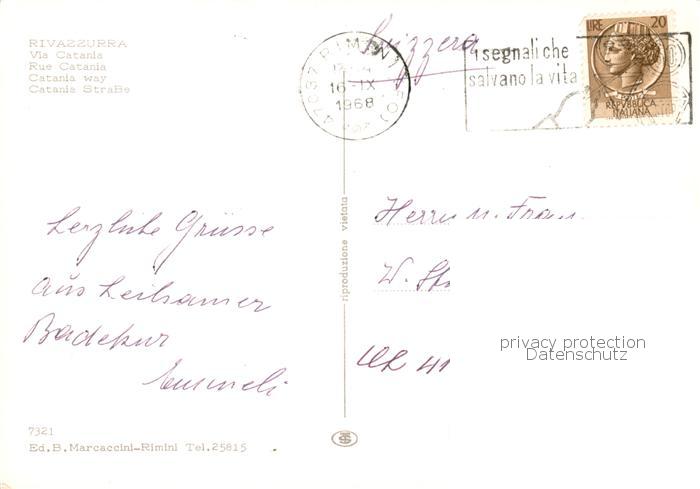 RIVAZZURRA
Via Catania
Rue Catania
Catania way
Catania StraBe
Svizzera
47037 RIMINI (FO)
16-IX
1968
i segnali che
salvano la vita
LIRE 20
REPVBBLICA
ITALIANA
Herzliche Grüsse
aus heilsamer
Badekur
riproduzione vietata
Herrn u. Frau
W.
41
privacy protection
Datenschutz
7321
Ed.B.Marcaccini-Rimini Tel.25815